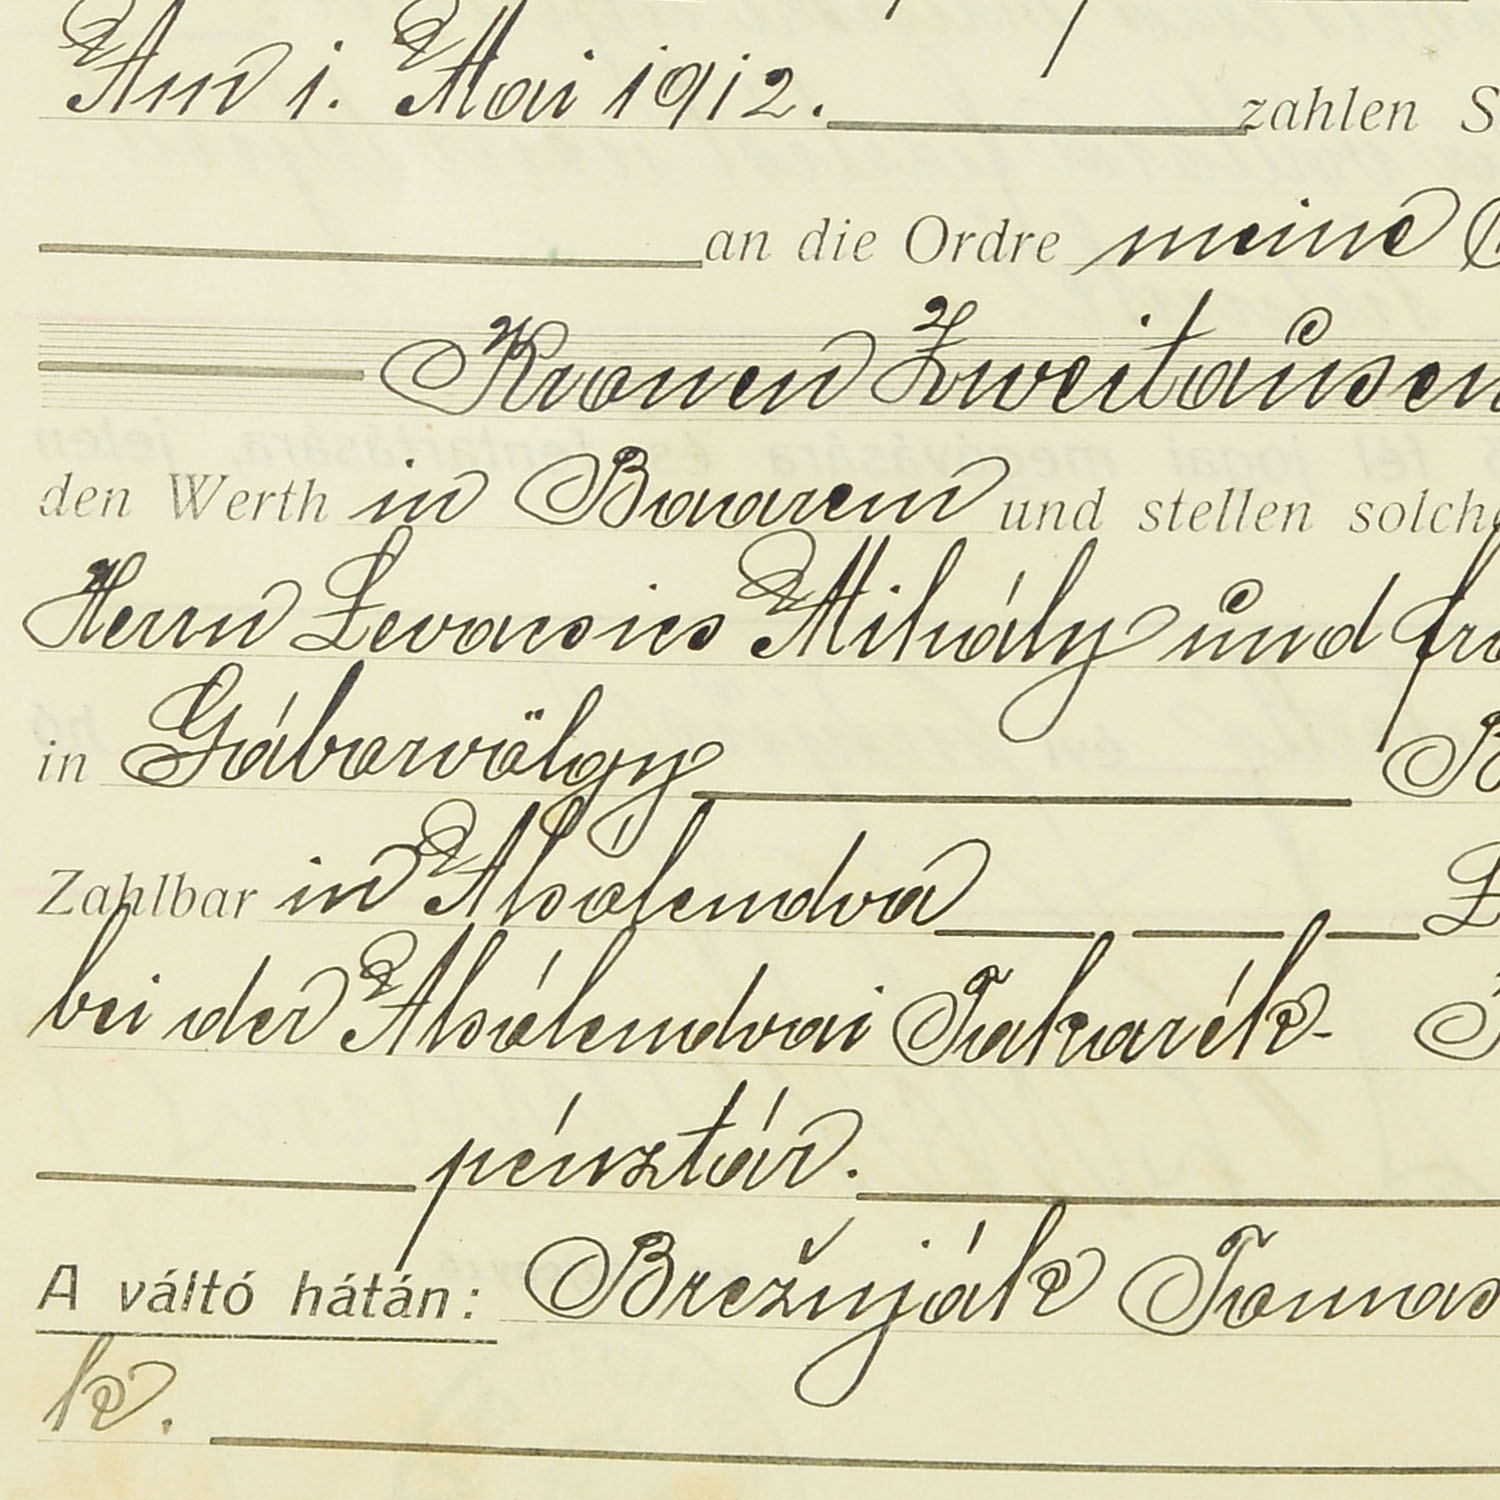 Am 1. Mai 1912. zahlen S
an die Ordre meine O
Kronen Zweitausen
den Werth in Baarem und stellen solche
Herrn Levacsics Mihály und fra
in Gáborvölgy B
Zahlbar in Alsólendva L
bei der Alsólendvai Takarék- T
pénztár.
A váltó hátán: Brežnják Tamas
k.